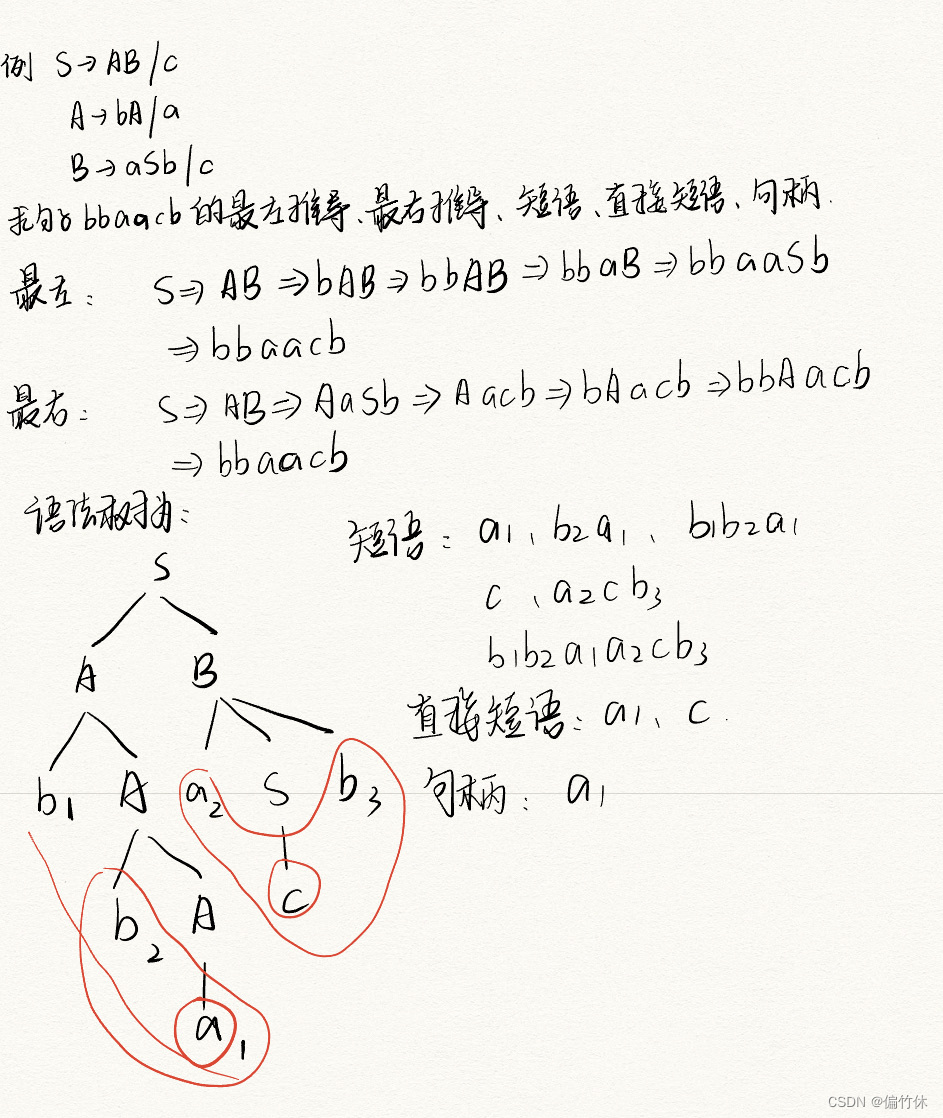 例 S→AB/c
A→bA/a
B→aSb/c
求句子bbaacb的最左推导、最右推导、短语、直接短语、句柄.
最左： S⇒AB⇒bAB⇒bbAB⇒bbaB⇒bbaaSb
⇒bbaacb
最右： S⇒AB⇒AaSb⇒Aacb⇒bAacb⇒bbAacb
⇒bbaacb
语法树为：
S
A B
b1 A a2 S b3
b2 A c
a1
短语：a1、b2a1、b1b2a1
c、a2cb3
b1b2a1a2cb3
直接短语：a1、c.
句柄：a1
CSDN @偏竹休